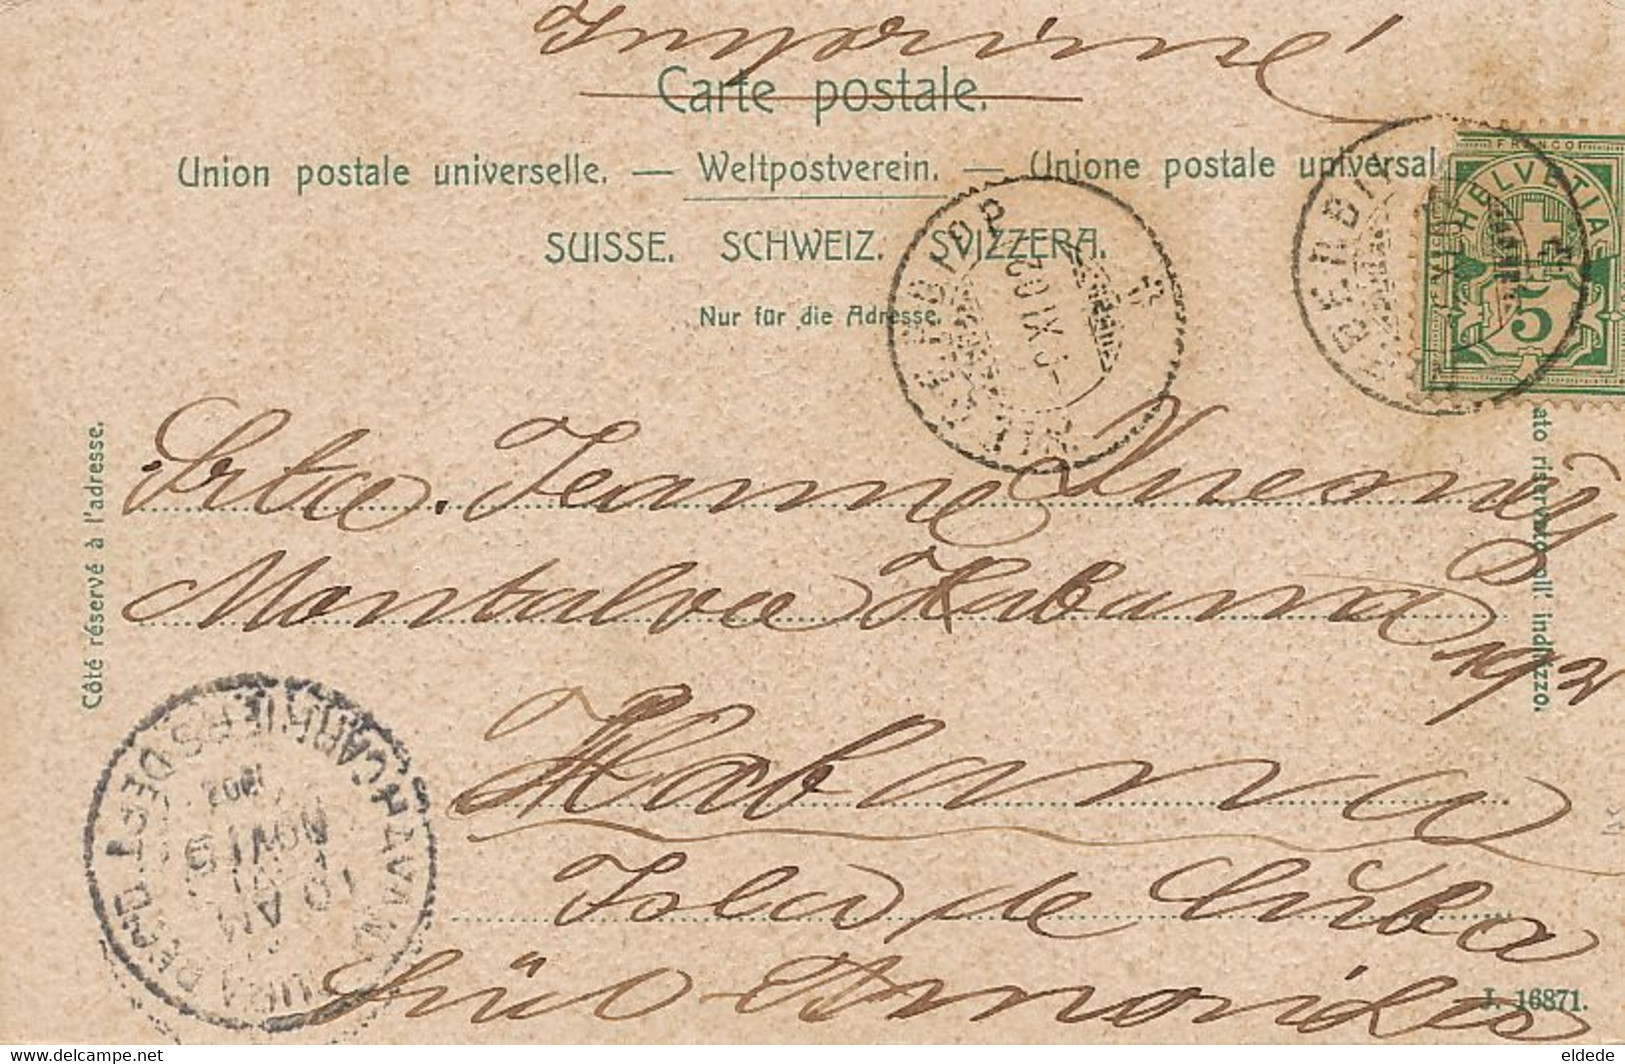 Imprimé
Carte postale.
Union postale universelle. — Weltpostverein. — Unione postale universale
SUISSE. SCHWEIZ. SVIZZERA.
Nur für die Adresse.
FRANCO
HELVETIA
5
HERZOGENBUCHSEE
Côté réservé à l'adresse.
Lato riservato all' indirizzo.
Srta. Jeanne
Montalva Habana
192
Habana
Isla de Cuba
Süd
CARRIERS DEPT.
HAVANA
1902
NOV 19
10 AM
J. 16871.
www.delcampe.net
eldede